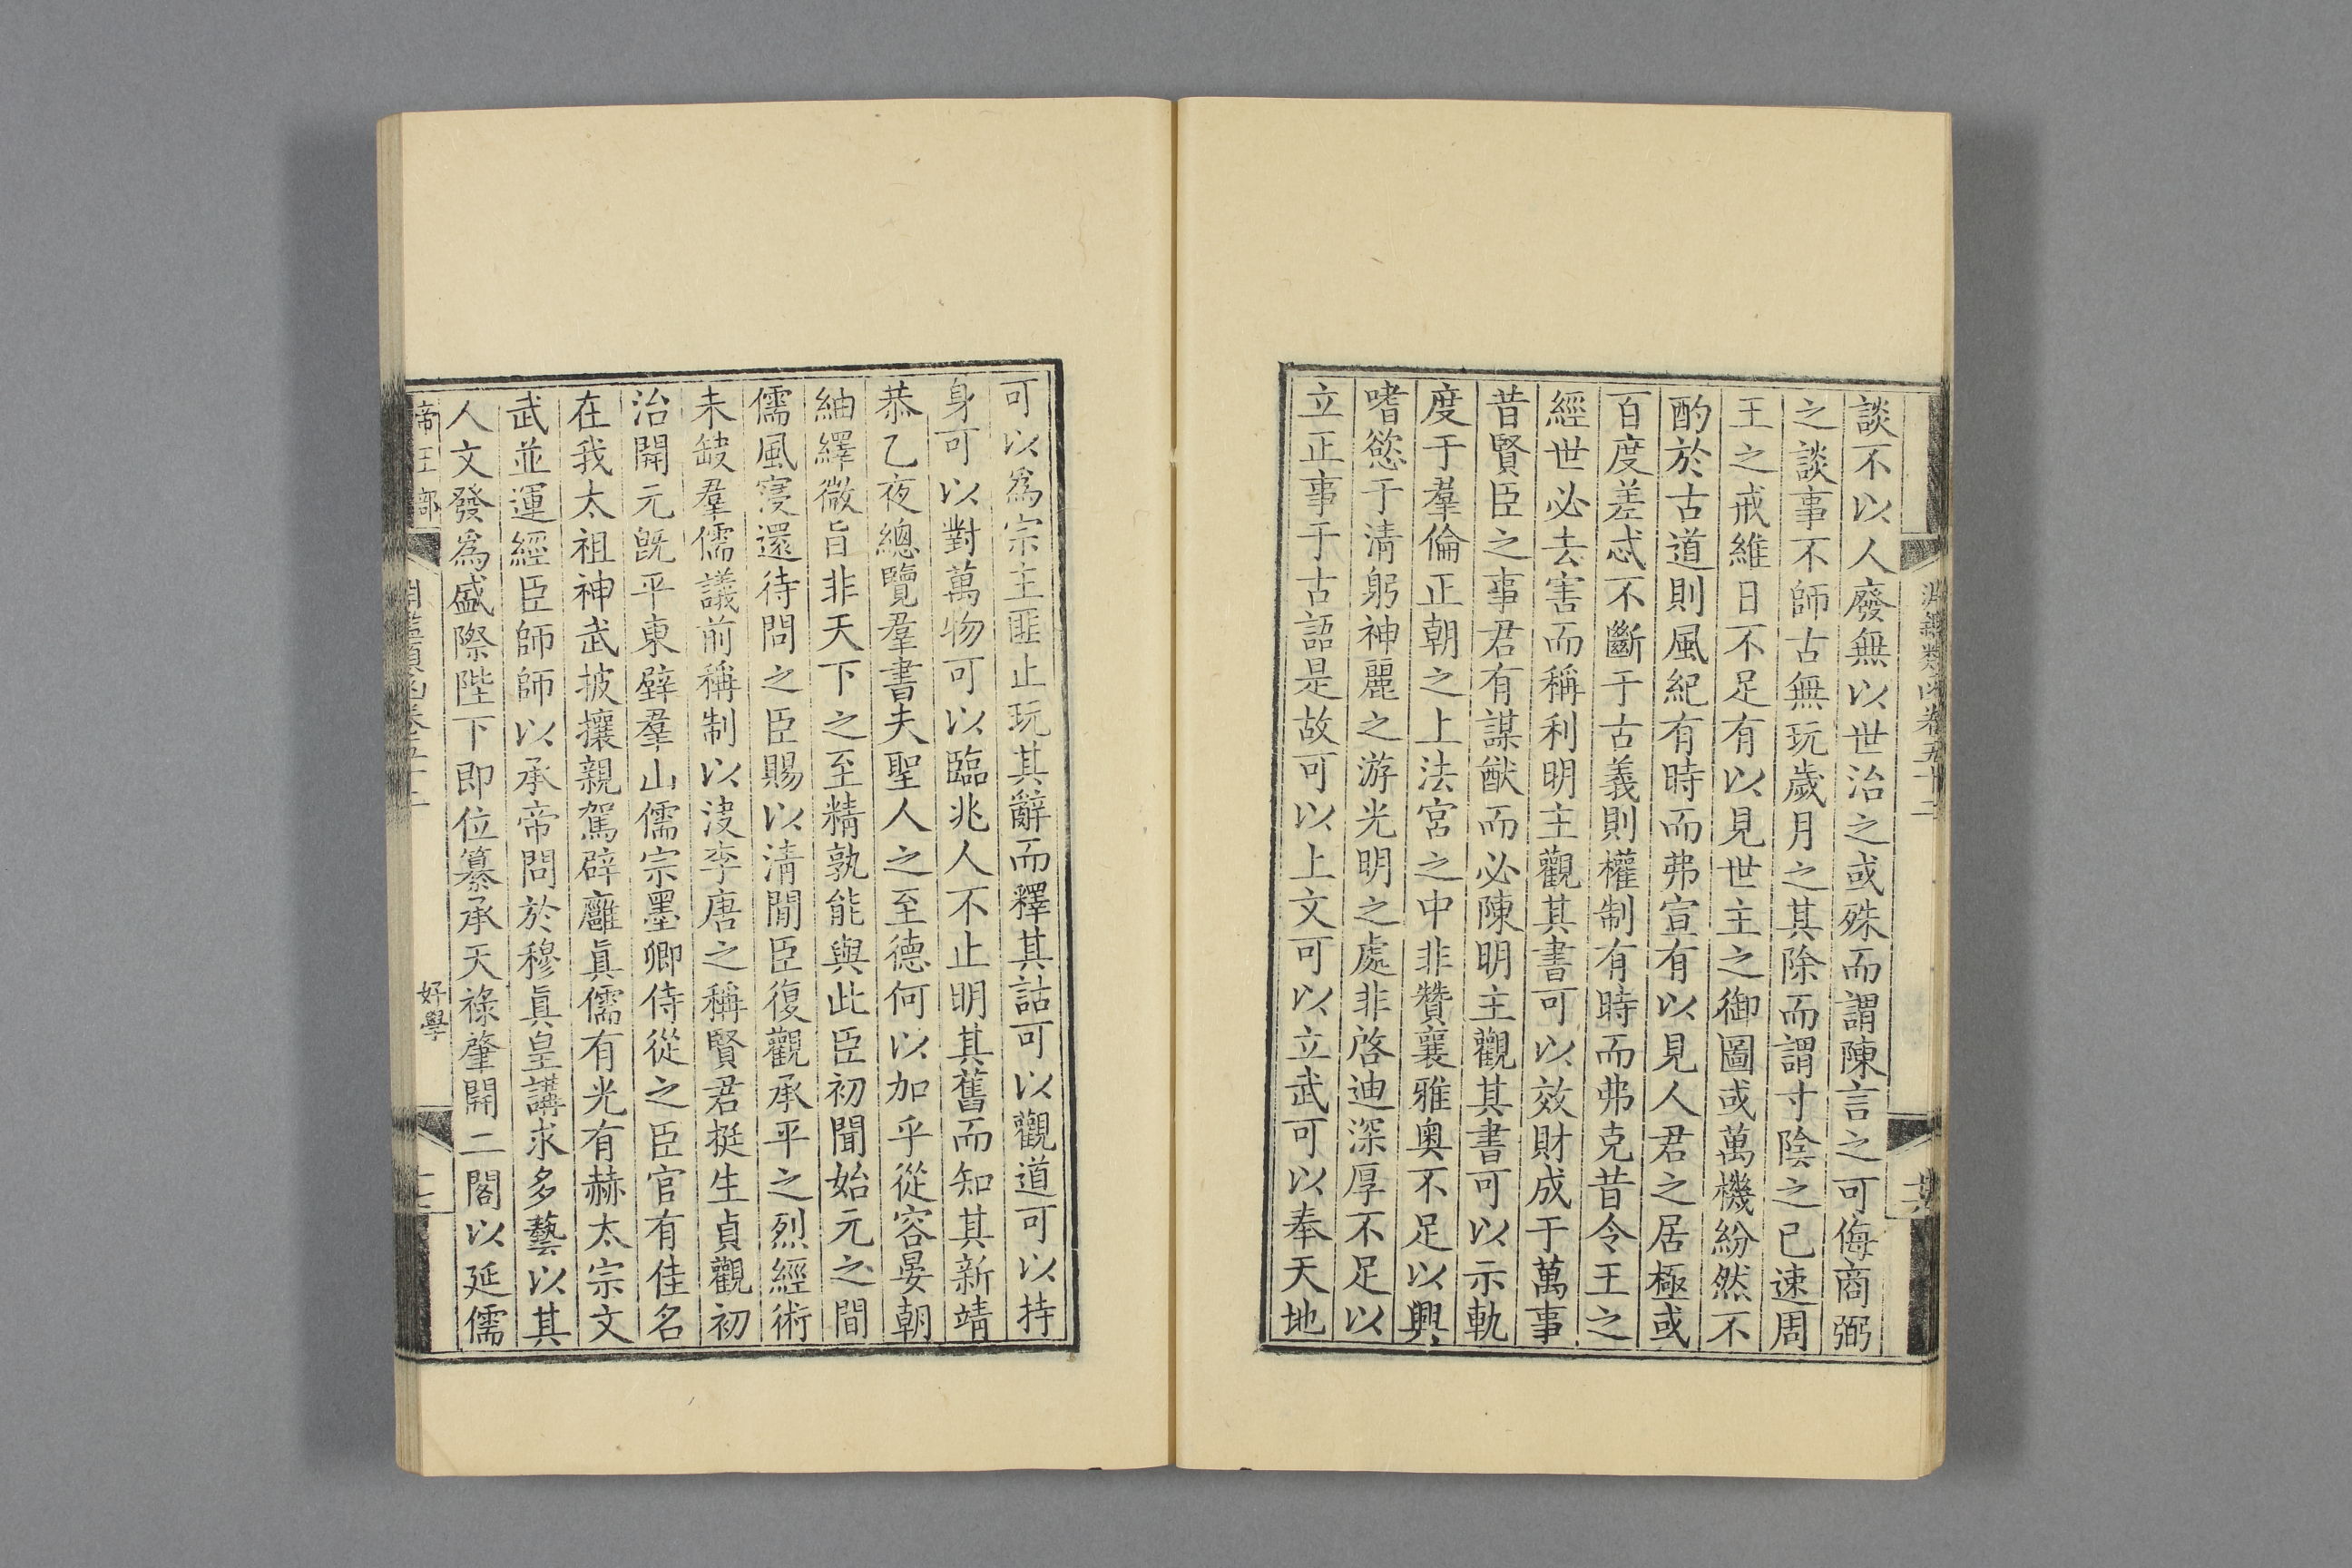 淵鑑類函卷五十二
談不以人廢無以世治之或殊而謂陳言之可侮商弼
之談事不師古無玩歲月之其除而謂寸陰之已速周
王之戒維日不足有以見世主之御圖或萬機紛然不
酌於古道則風紀有時而弗宣有以見人君之居極或
百度差忒不斷于古義則權制有時而弗克昔令王之
經世必去害而稱利明主觀其書可以效財成于萬事
昔賢臣之事君有謀猷而必陳明主觀其書可以示軌
度于羣倫正朝之上法宮之中非贊襄雅奧不足以興
嗜慾于清躬神麗之游光明之處非啓迪深厚不足以
立正事于古語是故可以上文可以立武可以奉天地
可以爲宗主匪止玩其辭而釋其詁可以觀道可以持
身可以對萬物可以臨兆人不止明其舊而知其新靖
恭乙夜總覽羣書夫聖人之至德何以加乎從容晏朝
紬繹微旨非天下之至精孰能與此臣初聞始元之間
儒風寖還待問之臣賜以清閒臣復觀承平之烈經術
未缺羣儒議前稱制以決李唐之稱賢君挺生貞觀初
治開元旣平東壁羣山儒宗墨卿侍從之臣官有佳名
在我太祖神武披攘親駕辟廱眞儒有光有赫太宗文
武並運經臣師師以承帝問於穆眞皇講求多藝以其
人文發爲盛際陛下即位纂承天祿肇開二閣以延儒
帝王部
好學